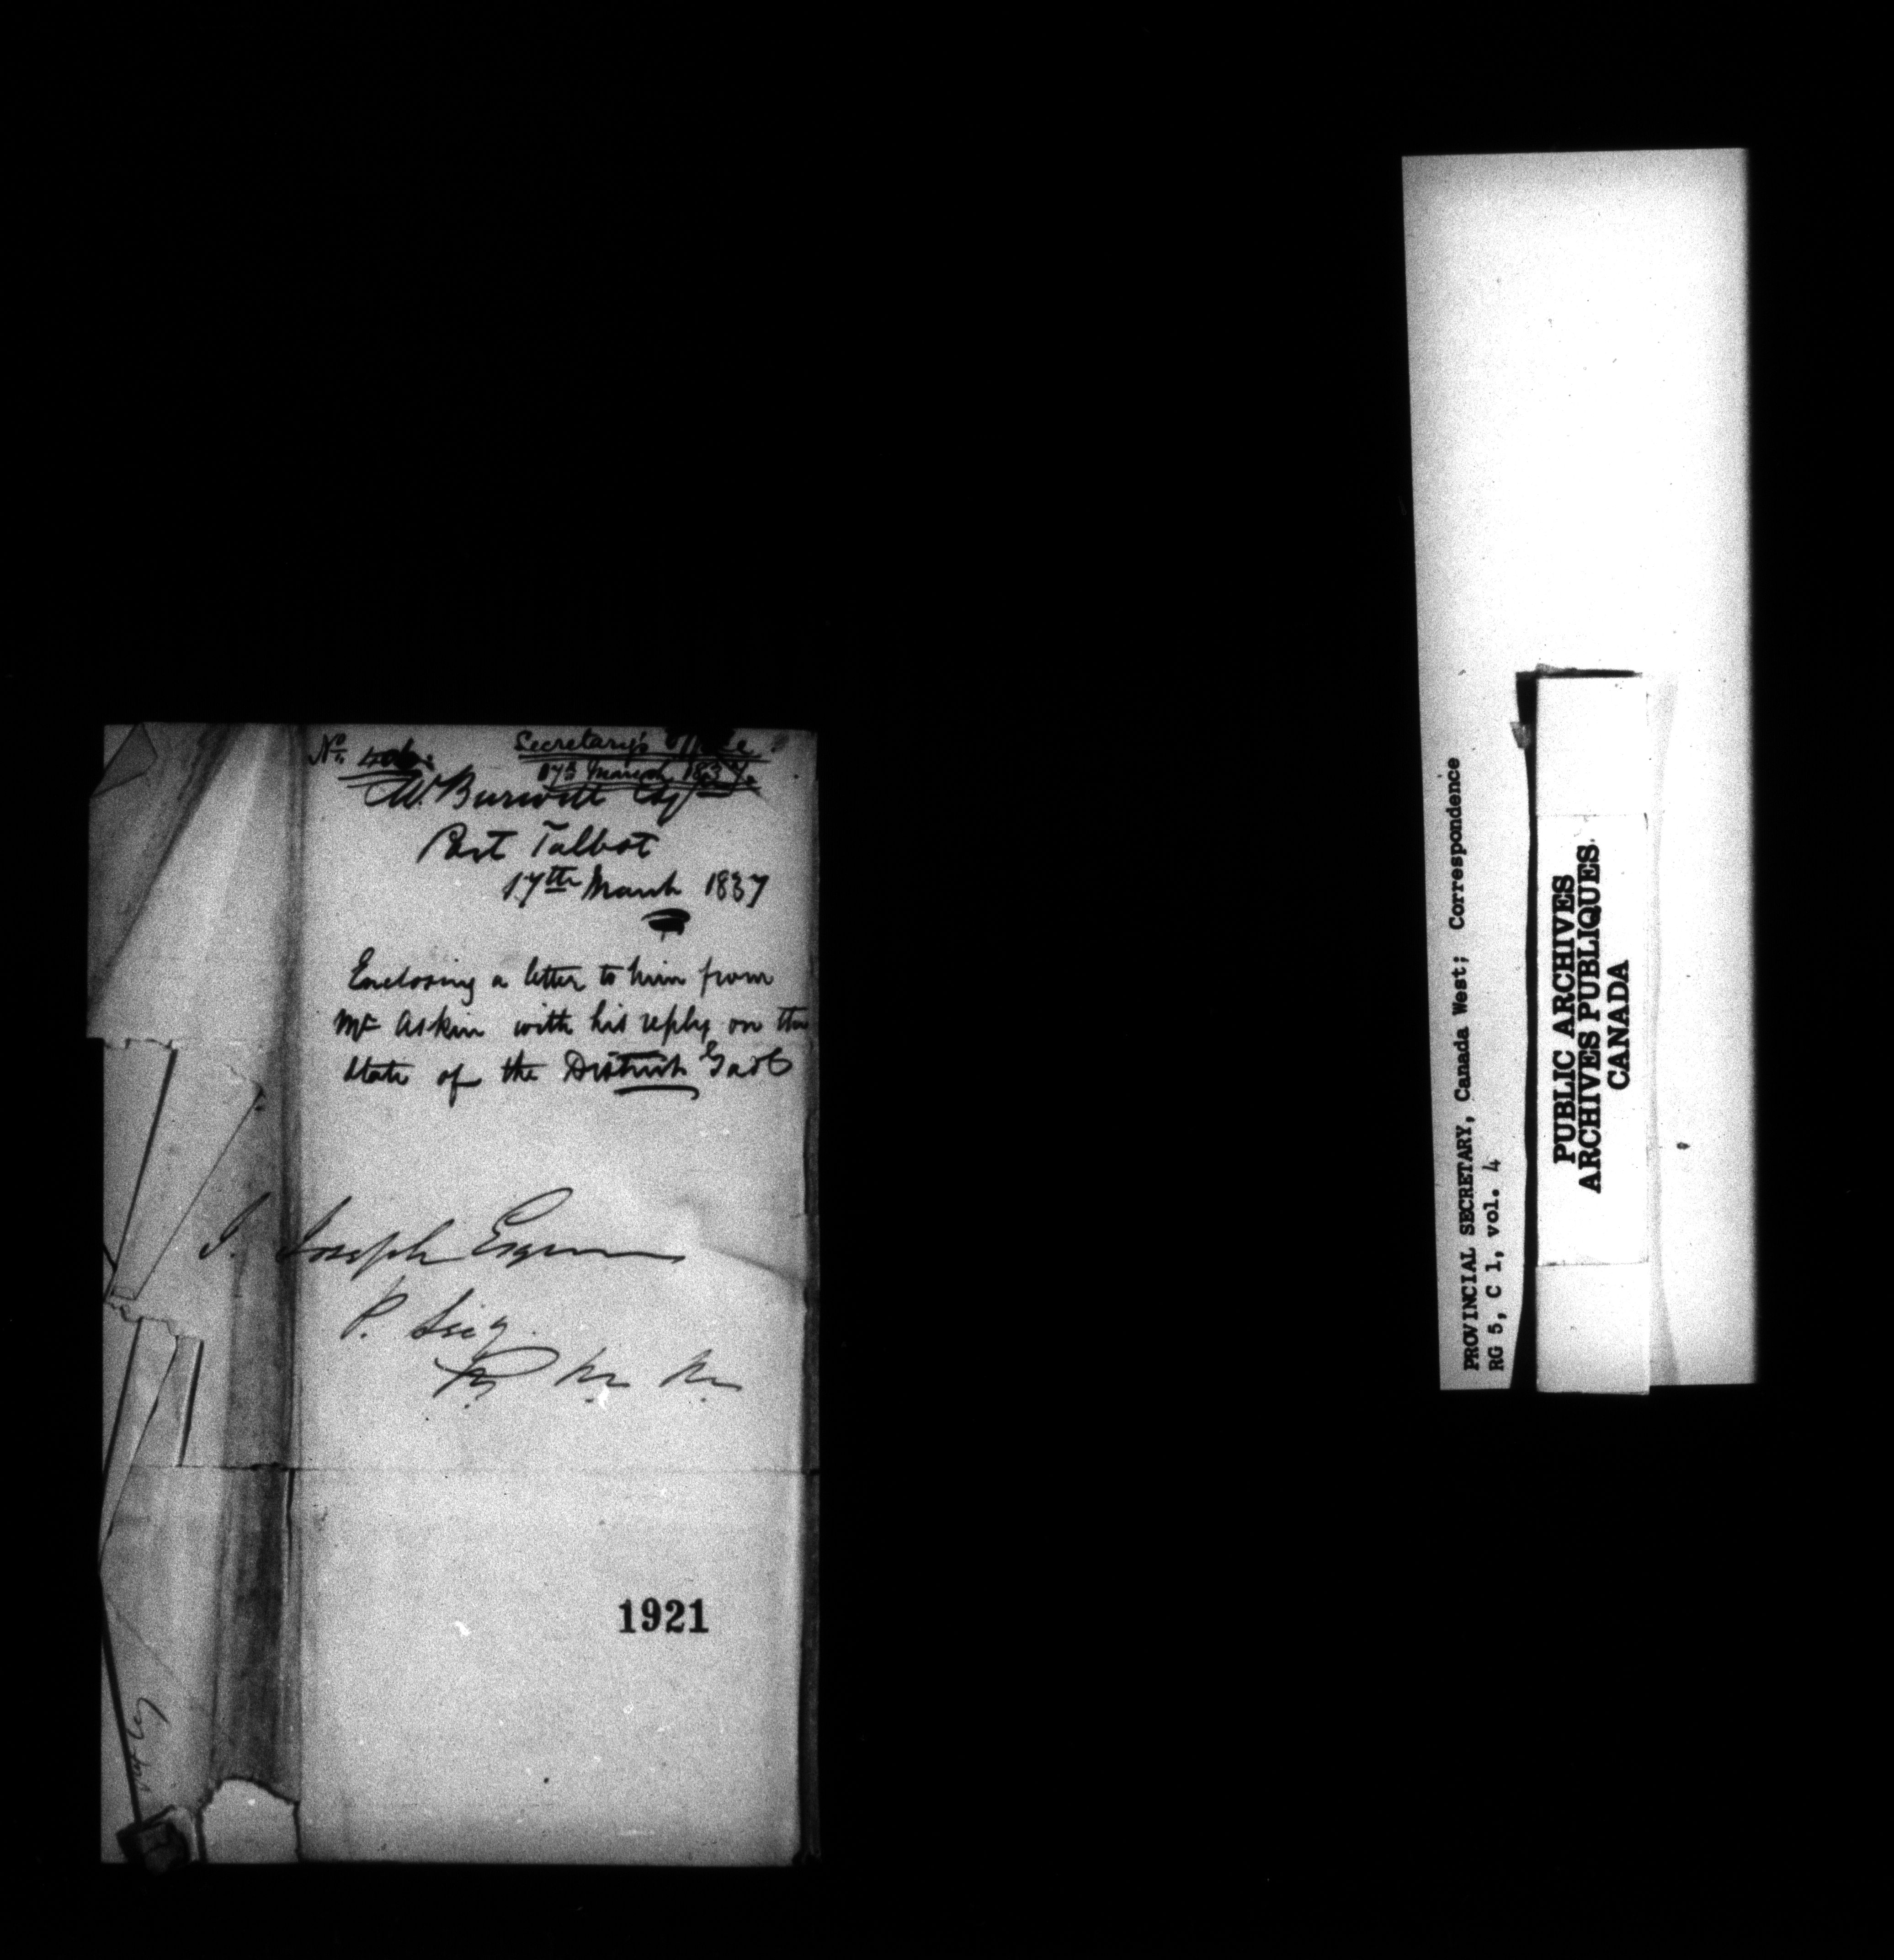 No.
Secretary's Office
17th March 1837.
M. Burwell Esqr
Port Talbot
17th March 1837
Enclosing a letter to him from
Mr Askin with his reply on the
state of the District Gaol
J. Joseph Esquire
P. Secy.
1921
PROVINCIAL SECRETARY, Canada West; Correspondence
RG 5, C 1, vol. 4
PUBLIC ARCHIVES
ARCHIVES PUBLIQUES
CANADA